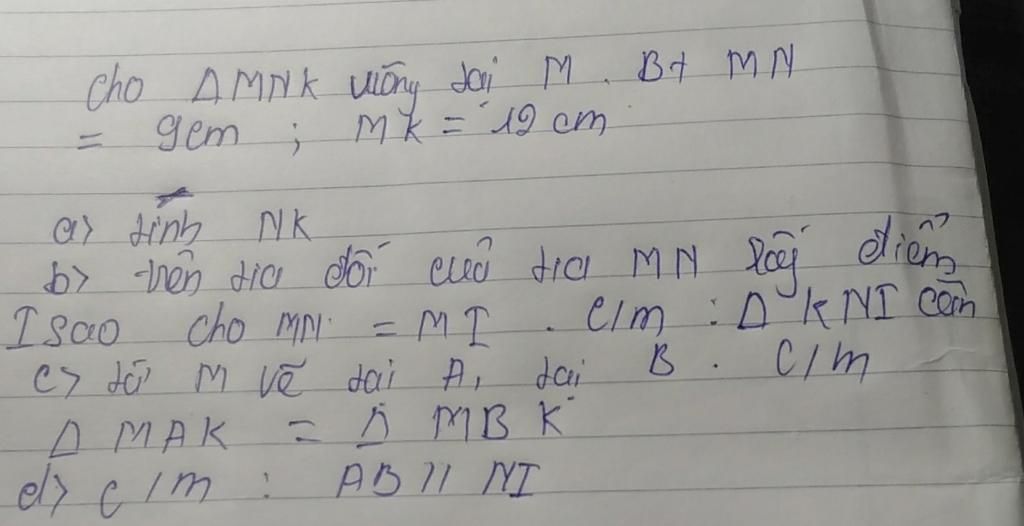 Cho Δ MNK vuông tại M. Bt MN
= 9cm ; MK = 12 cm
a> tính NK
b> trên tia đối cuả tia MN lấy điểm
I sao cho MN = MI . C/m : Δ KNI cân
c> từ M vẽ tại A, tại B . C/m
Δ MAK = Δ MBK
d> c/m : AB // NI